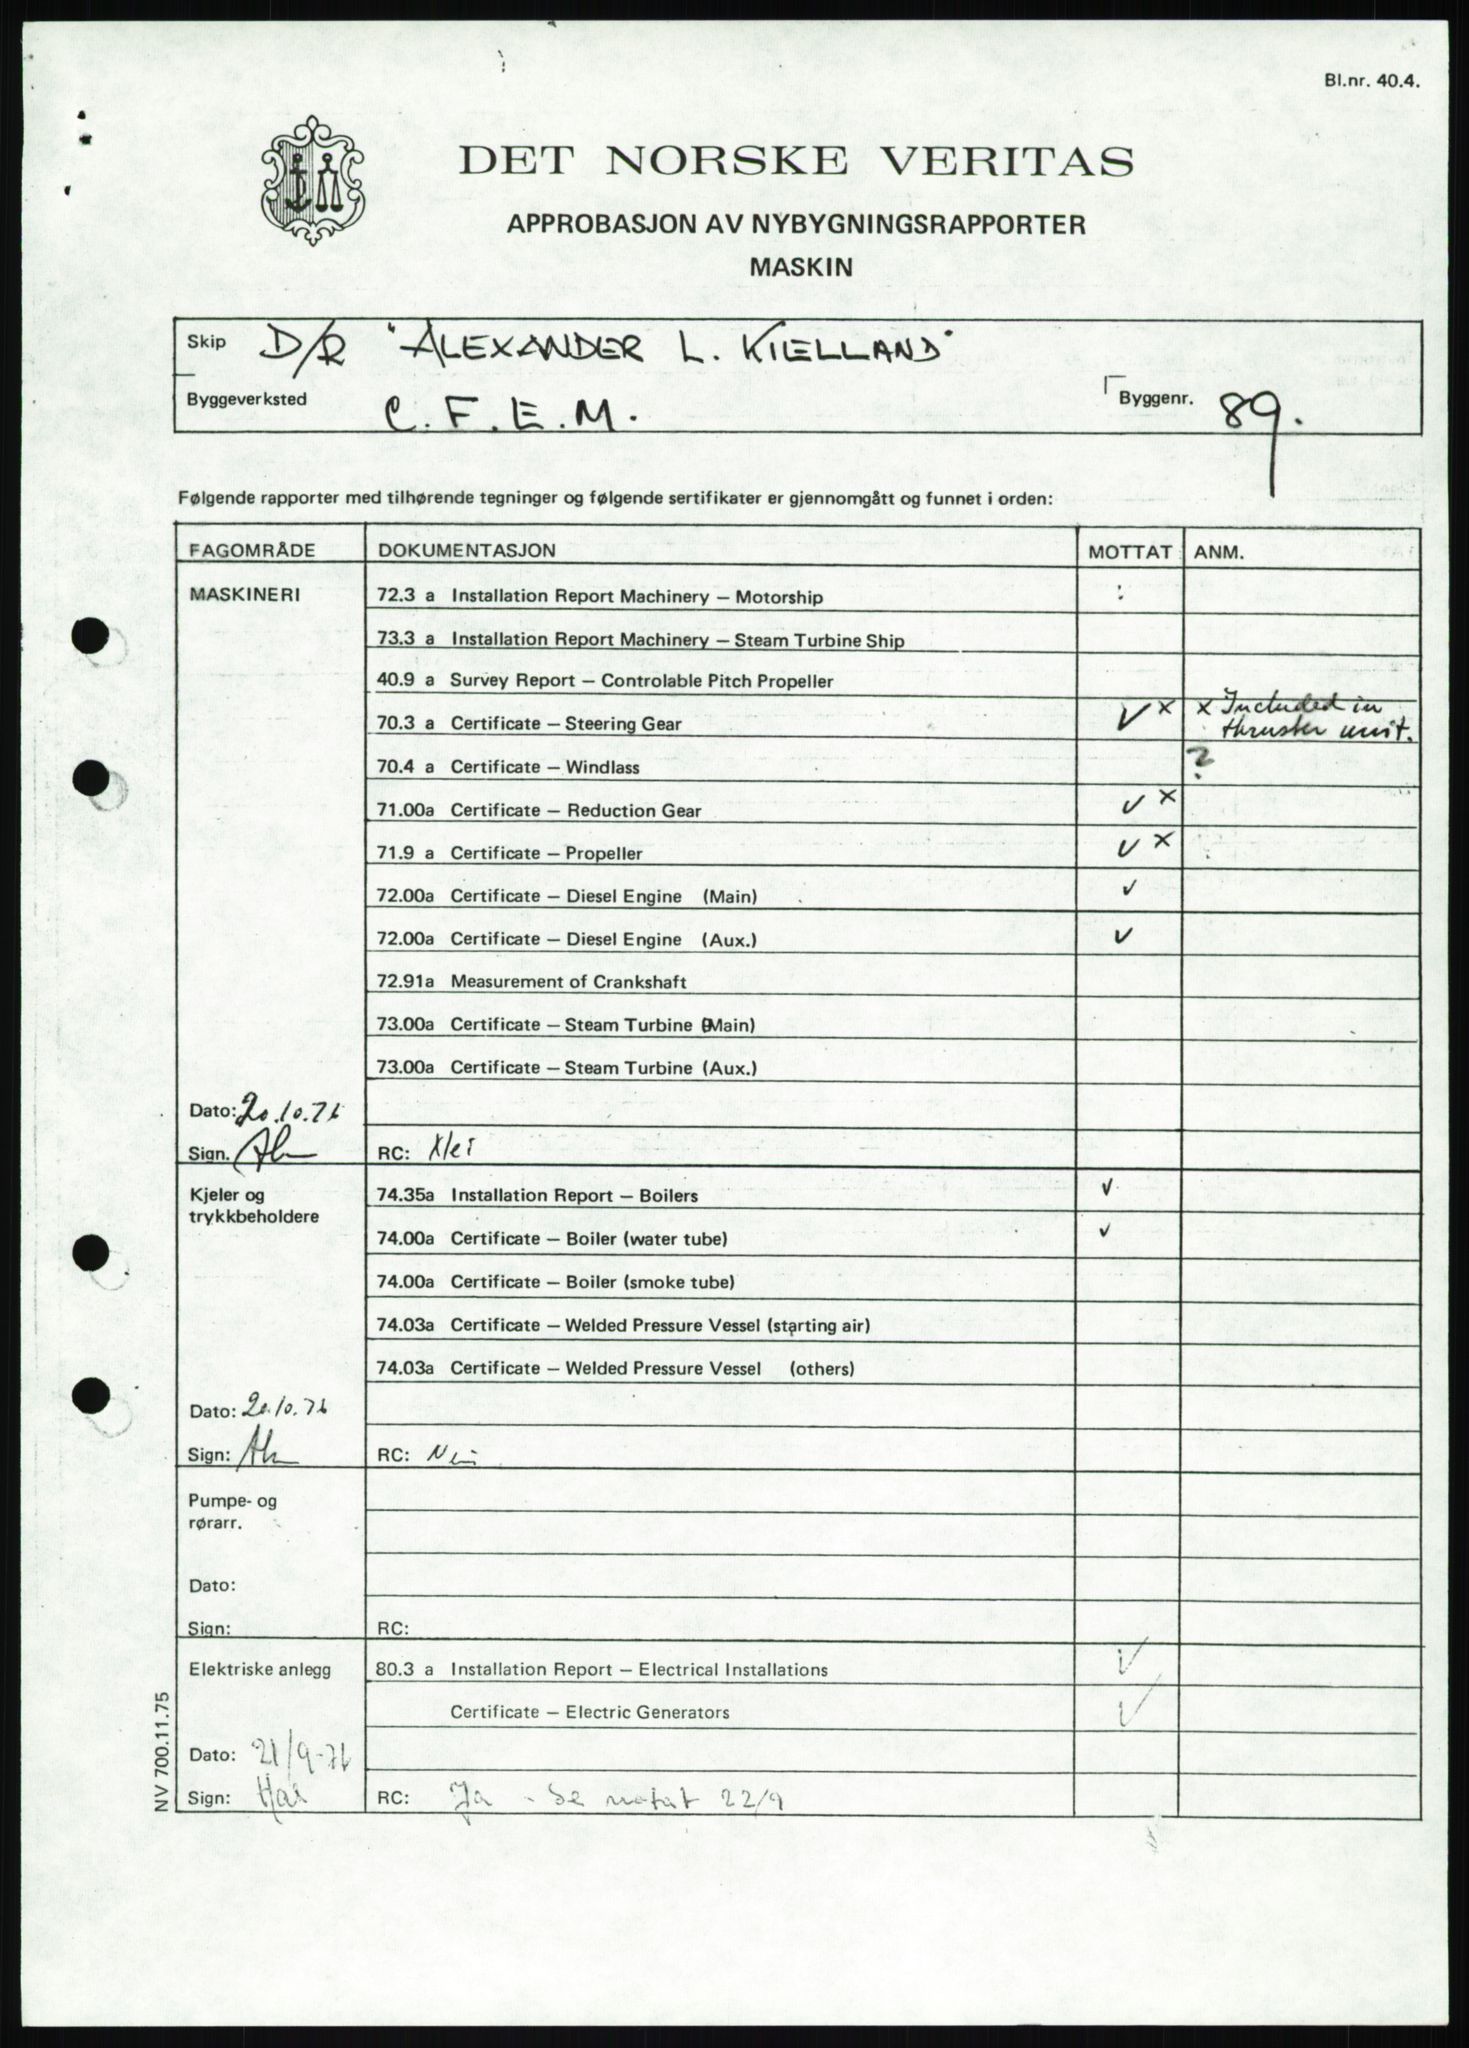 Bl.nr. 40.4.
DET NORSKE VERITAS
APPROBASJON AV NYBYGNINGSRAPPORTER
MASKIN
Skip D/R "ALEXANDER L. KIELLAND"
Byggeverksted C.F.E.M. Byggenr. 89.
Følgende rapporter med tilhørende tegninger og følgende sertifikater er gjennomgått og funnet i orden:
FAGOMRÅDE DOKUMENTASJON MOTTAT ANM.
MASKINERI 72.3 a Installation Report Machinery – Motorship
73.3 a Installation Report Machinery – Steam Turbine Ship
40.9 a Survey Report – Controlable Pitch Propeller
70.3 a Certificate – Steering Gear ✓ x x Included in
thruster unit.
70.4 a Certificate – Windlass ?
71.00a Certificate – Reduction Gear ✓ x
71.9 a Certificate – Propeller ✓ x
72.00a Certificate – Diesel Engine (Main) ✓
72.00a Certificate – Diesel Engine (Aux.) ✓
72.91a Measurement of Crankshaft
73.00a Certificate – Steam Turbine (Main)
73.00a Certificate – Steam Turbine (Aux.)
Dato: 20.10.76
Sign. RC:
Kjeler og 74.35a Installation Report – Boilers ✓
trykkbeholdere
74.00a Certificate – Boiler (water tube) ✓
74.00a Certificate – Boiler (smoke tube)
74.03a Certificate – Welded Pressure Vessel (starting air)
74.03a Certificate – Welded Pressure Vessel (others)
Dato: 20.10.76
Sign: RC: Nei
Pumpe- og
rørarr.
Dato:
Sign: RC:
Elektriske anlegg 80.3 a Installation Report – Electrical Installations ✓
Certificate – Electric Generators ✓
Dato: 21/9-76
Sign: RC: Ja - Se notat 22/9
NV 700.11.75